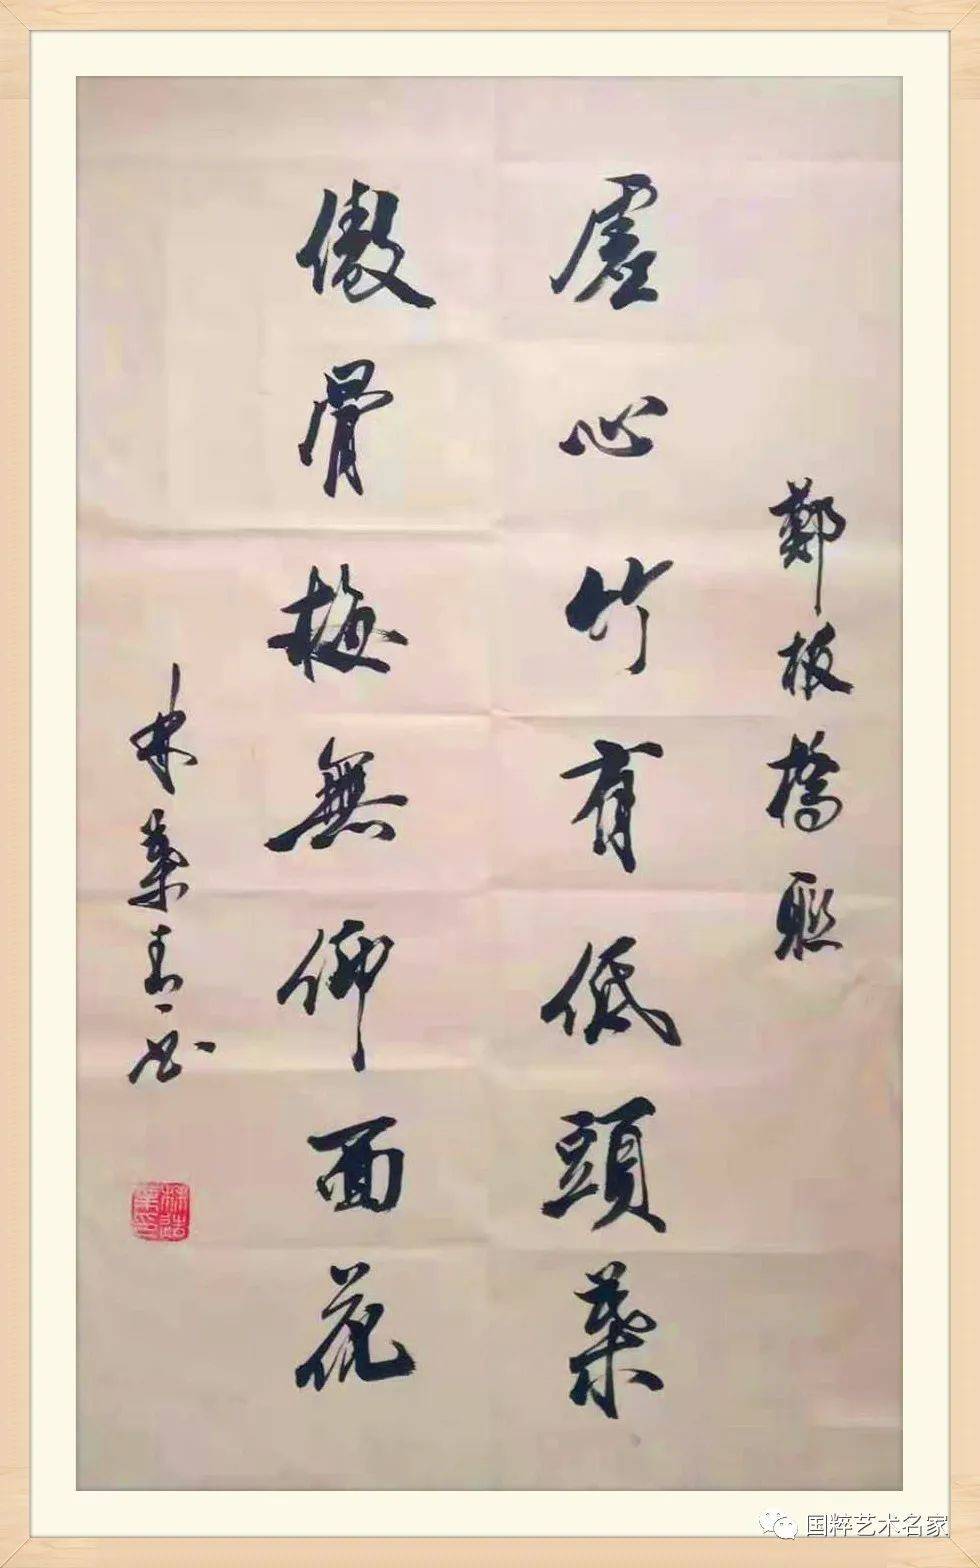 鄭板橋聯
虛心竹有低頭葉
傲骨梅無仰面花
林书
国粹艺术名家